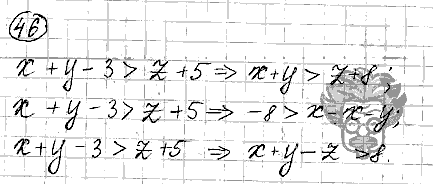 46
x + y - 3 > z + 5 ⇒ x + y > z + 8;
x + y - 3 > z + 5 ⇒ -8 > x - x - y;
x + y - 3 > z + 5 ⇒ x + y - z > 8.